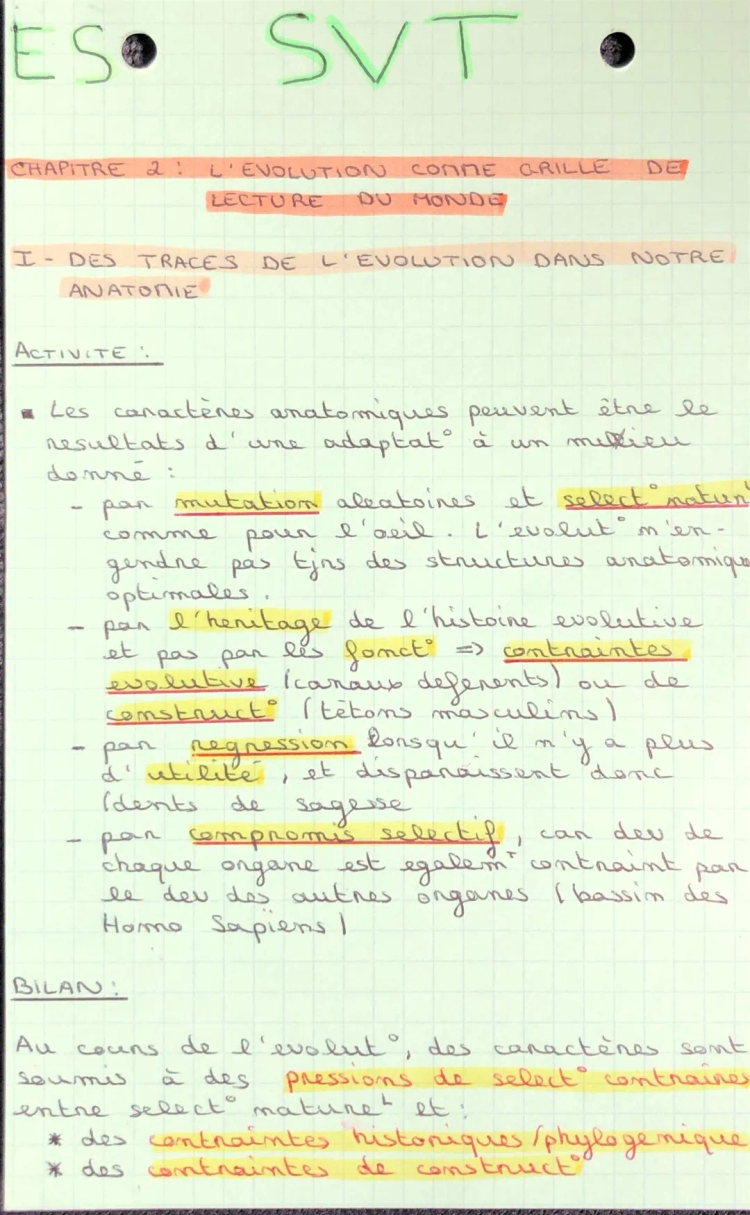 ES SVT
CHAPITRE 2 : L'EVOLUTION COMME GRILLE DE
LECTURE DU MONDE
I - DES TRACES DE L'EVOLUTION DANS NOTRE
ANATOMIE
ACTIVITE :
▪ Les caractères anatomiques peuvent être le
resultats d'une adaptat° à un milieu
donné :
- par mutation aleatoires et select° natur
comme pour l'oeil. L'evolut° n'en-
gendre pas tjrs des structures anatomique
optimales.
- par l'heritage de l'histoire evolutive
et pas par les fonct° => contraintes
evolutive (canaux deferents) ou de
construct° (tétons masculins)
- par regression lorsqu'il n'y a plus
d'utilité, et disparaissent donc
(dents de sagesse
- par compromis selectif, car dev de
chaque organe est egalemᵀ contraint par
le dev des autres organes (bassin des
Homo Sapiens)
BILAN :
Au cours de l'evolut°, des caractères sont
soumis à des pressions de select° contraires
entre select° natureᴸ et :
* des contraintes historiques/phylogenique
* des contraintes de construct°